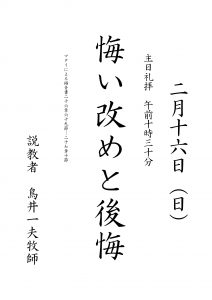 二月十六日（日）
主日礼拝　午前十時三十分
悔い改めと後悔
マタイによる福音書二十六章六十九節～二十七章十節
説教者　鳥井一夫牧師